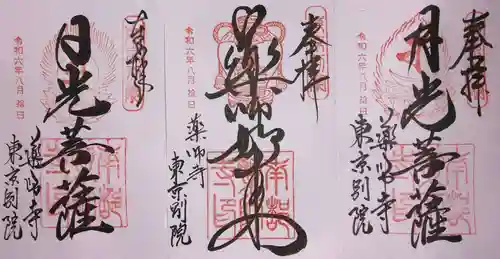 奉拝
月光菩薩
令和六年八月拾日
薬師寺
東京別院
奉拝
薬師如来
令和六年八月拾日
薬師寺
東京別院
奉拝
日光菩薩
令和六年八月拾日
薬師寺
東京別院